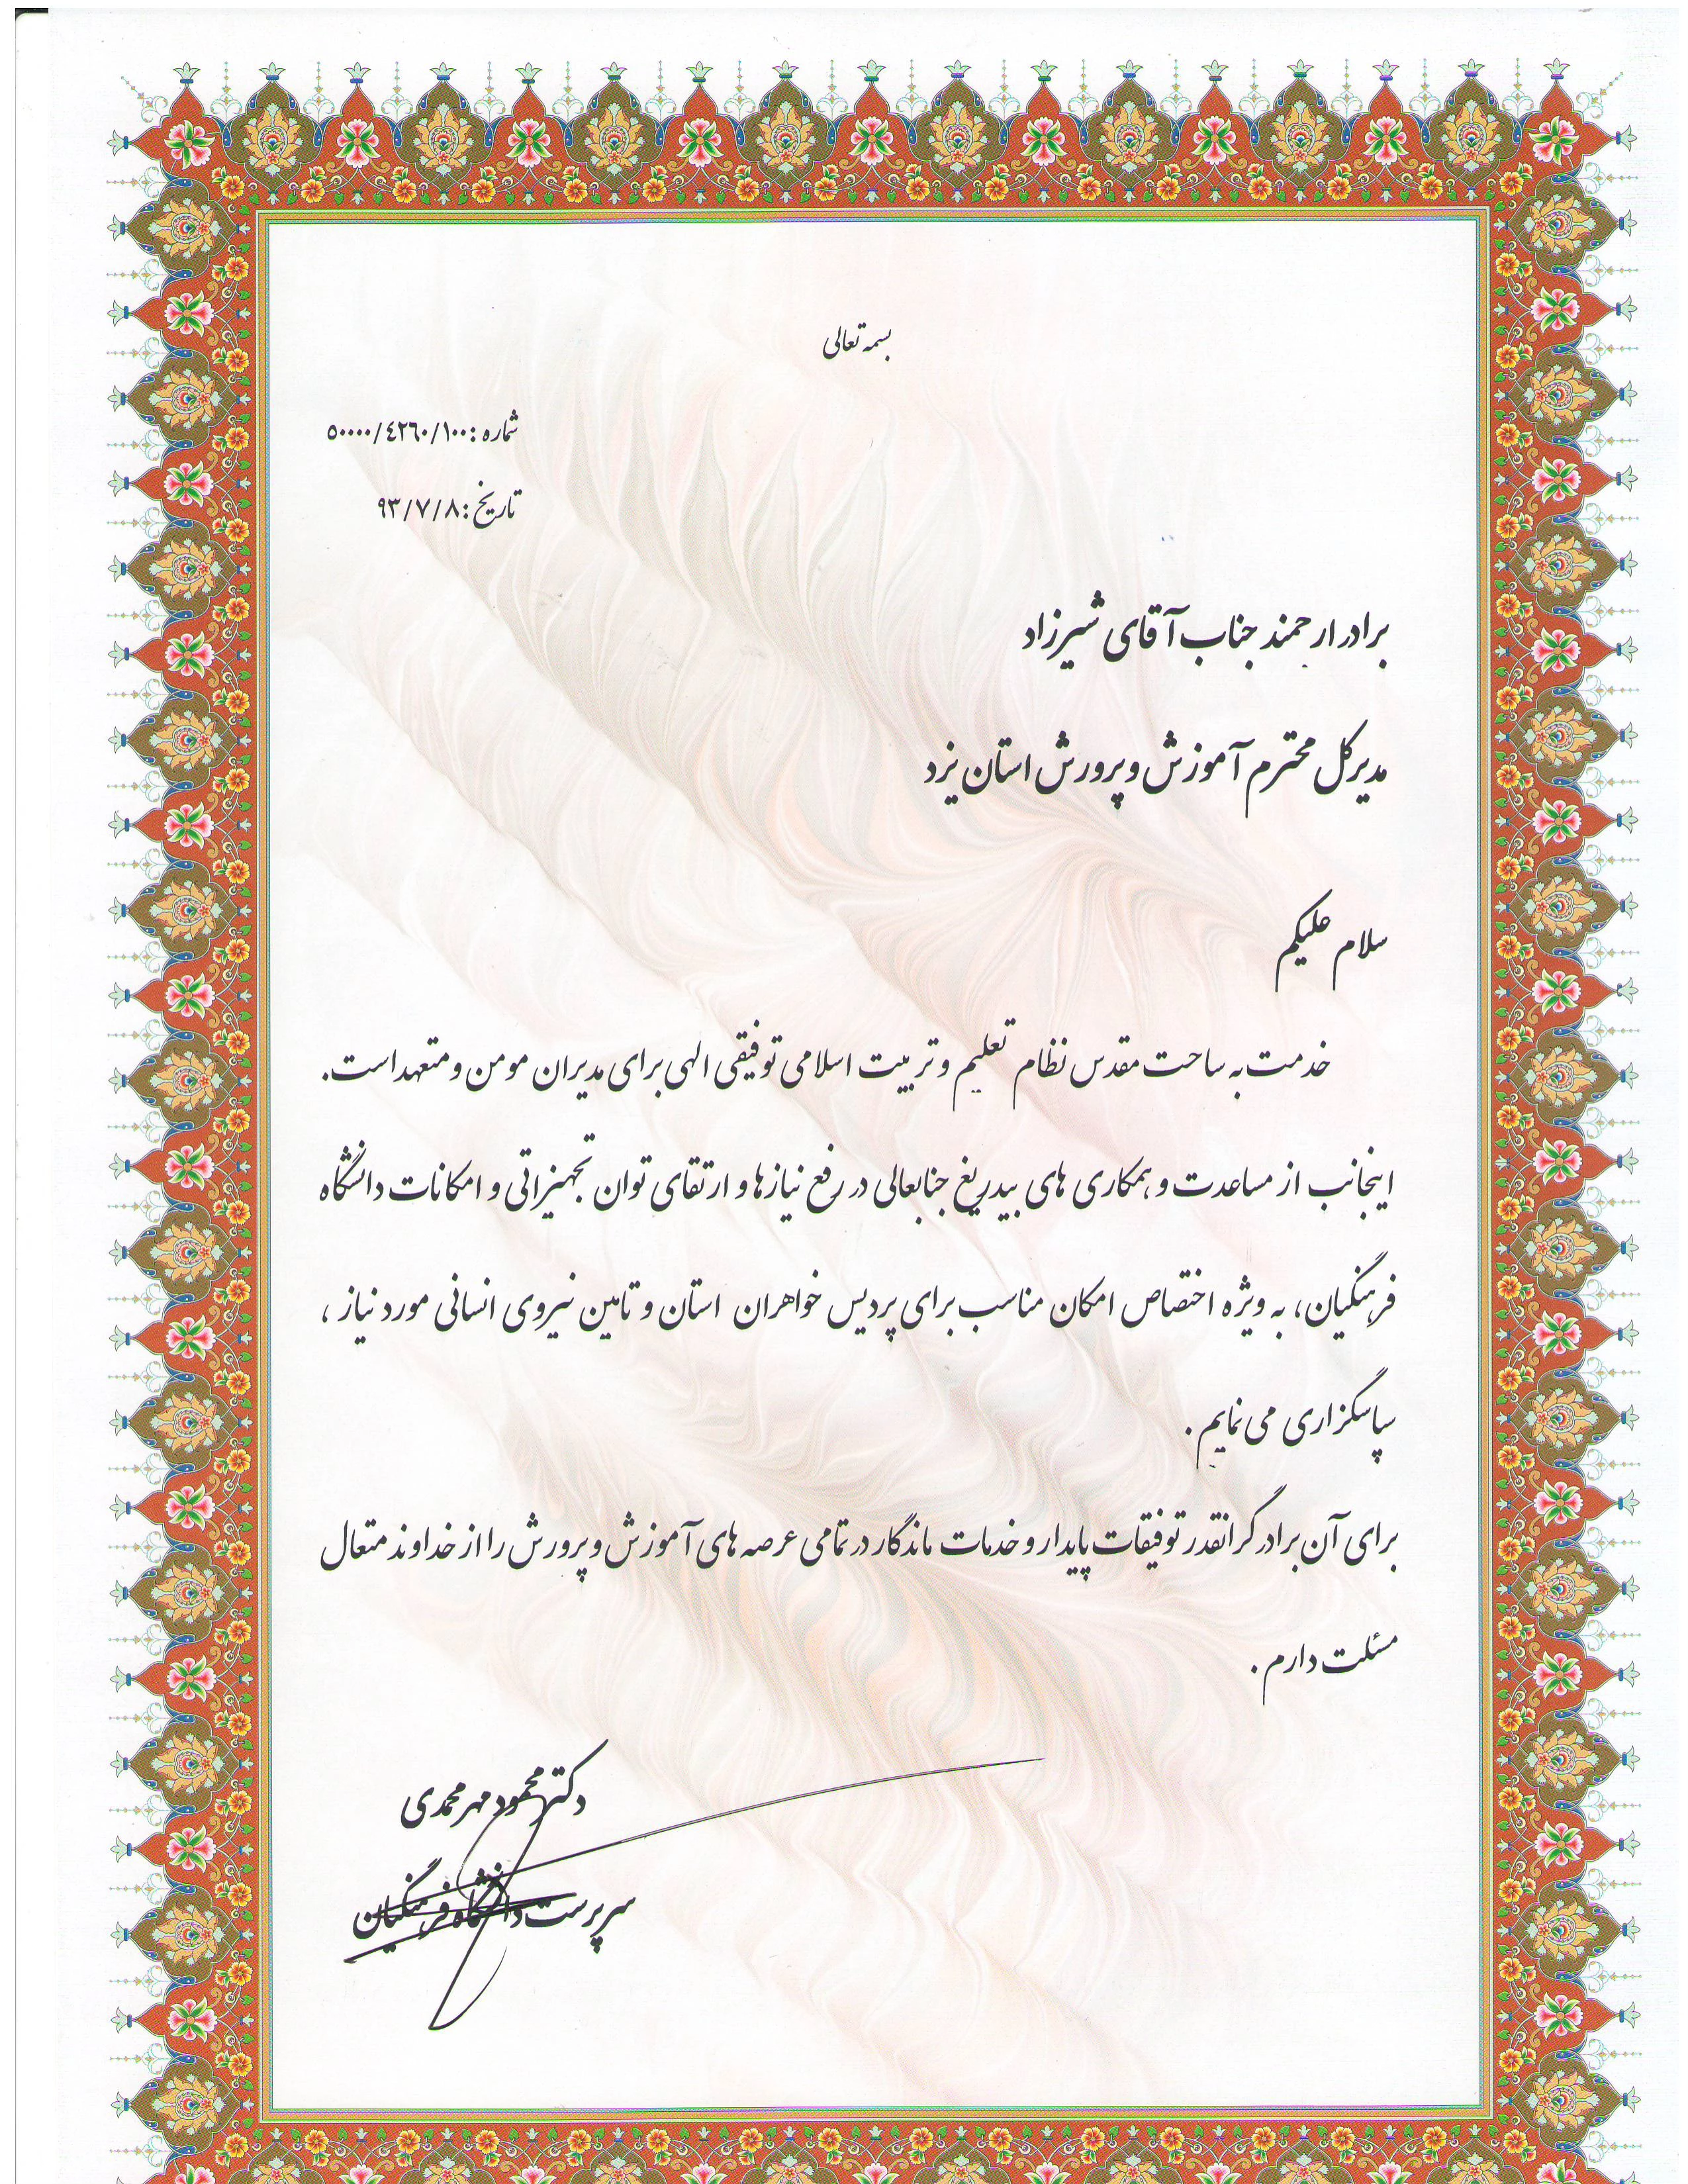 بسمه تعالی
شماره : ۵۰۰۰۰/٤٢٦٠/۱۰۰
تاریخ : ۹۳/۷/۸
برادر ارجمند جناب آقای شیرزاد
مدیرکل محترم آموزش و پرورش استان یزد
سلام علیکم
خدمت به ساحت مقدس نظام تعلیم و تربیت اسلامی توفیقی الهی برای مدیران مومن و متعهد است.
اینجانب از مساعدت و همکاری های بیدریغ جنابعالی در رفع نیازها و ارتقای توان تجهیزاتی و امکانات دانشگاه
فرهنگیان، به ویژه اختصاص امکان مناسب برای پردیس خواهران استان و تامین نیروی انسانی مورد نیاز ،
سپاسگزاری می نمایم .
برای آن برادر گرانقدر توفیقات پایدار و خدمات ماندگار در تمامی عرصه های آموزش و پرورش را از خداوند متعال
مسئلت دارم .
دکتر محمود مهرمحمدی
سرپرست دانشگاه فرهنگیان